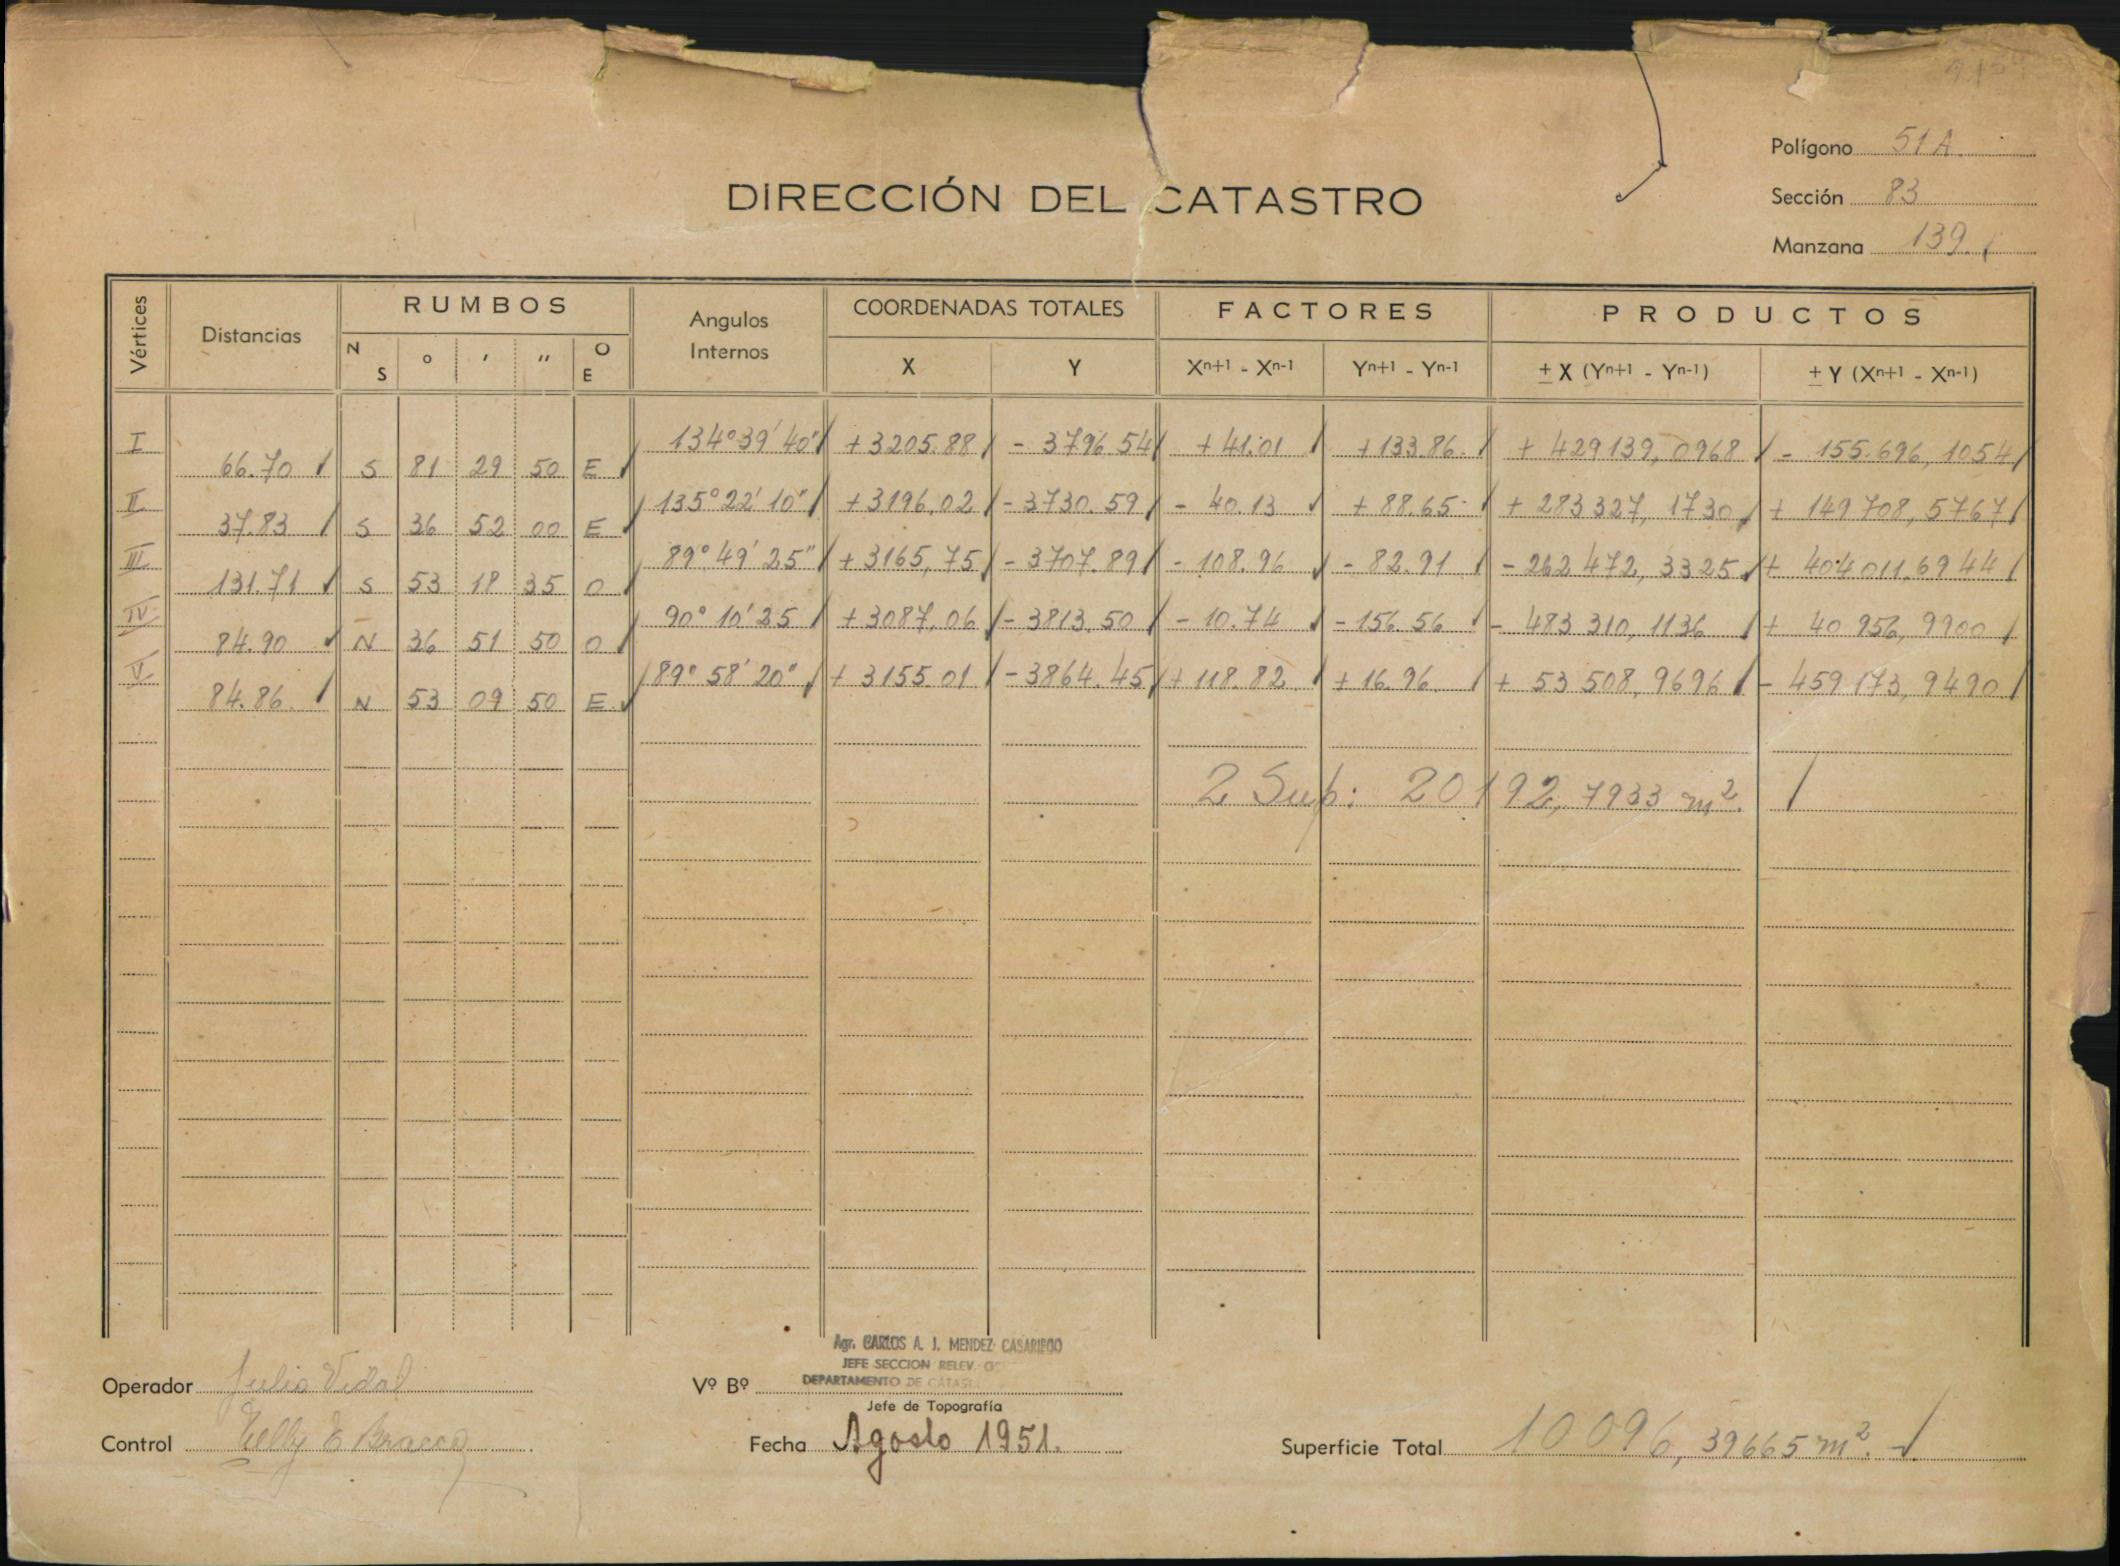 Polígono 51 A.
DIRECCIÓN DEL CATASTRO
Sección 83
Manzana 139.
Vértices Distancias RUMBOS Angulos Internos COORDENADAS TOTALES FACTORES PRODUCTOS
N S ° ' " O E X Y Xn+1 - Xn-1 Yn+1 - Yn-1 ± X (Yn+1 - Yn-1) ± Y (Xn+1 - Xn-1)
I 134° 39' 40" +3205.88 - 3796.54 + 41.01 +133.86. + 429139,0968 - 155.696,1054
66.70 S 81 29 50 E
II 135° 22' 10" +3196,02 -3730.59 - 40.13 + 88.65 + 283327,1730 + 149708,5767
37.83 S 36 52 00 E
III 89° 49' 25" +3165,75 -3707.89 - 108.96 - 82.91 -262472,3325 + 404011.6944
131.71 S 53 18 35 O
IV 90° 10' 25 +3087,06 -3813.50 - 10.74 -156.56 - 483310,1136 + 40956,9900
84.90 N 36 51 50 O
V 89° 58' 20" + 3155.01 -3864.45 + 118.82 +16.96 + 53508,9696 - 459173,9490
84.86. N 53 09 50 E
2 Sup: 20192,7933 m².
Agr. CARLOS A. J. MENDEZ CASARIEGO
JEFE SECCION RELEV.
Operador Julio Vidal Vº Bº DEPARTAMENTO DE CATAS
Jefe de Topografía
Control Nelly E Bracco Fecha Agosto 1951. Superficie Total 10096,39665 m².